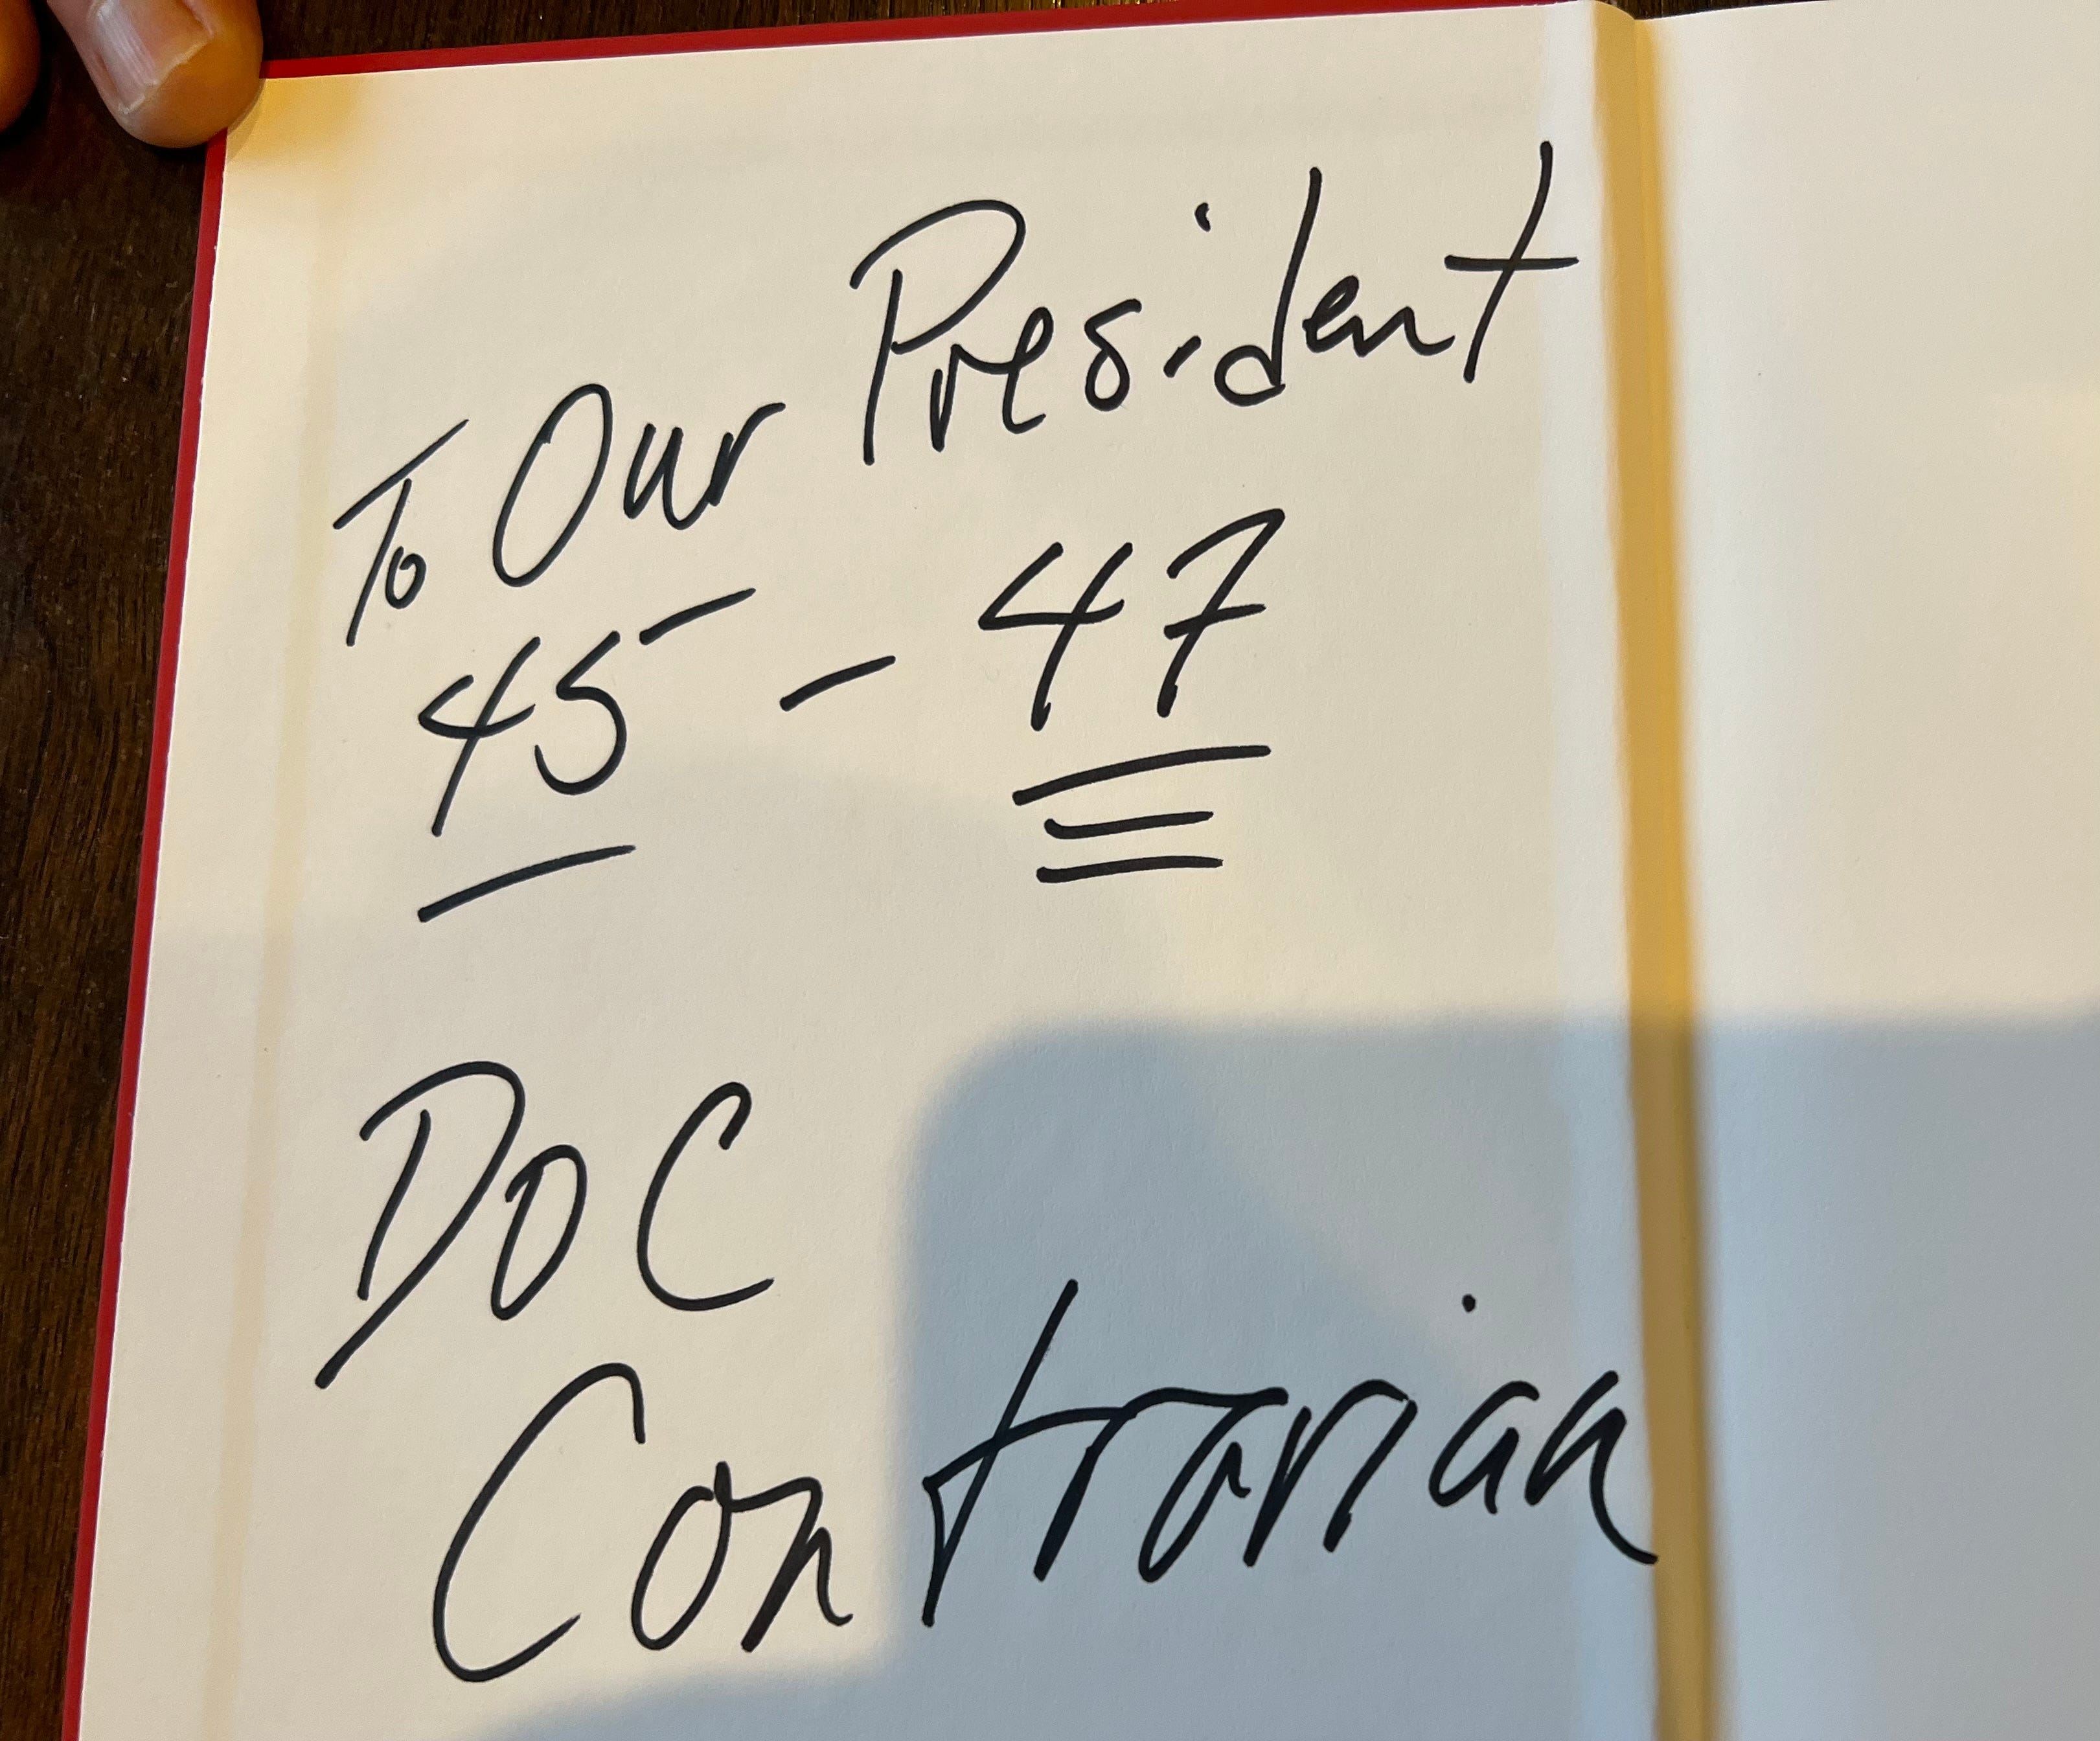 To Our President
45 - 47
Doc
Contrarian